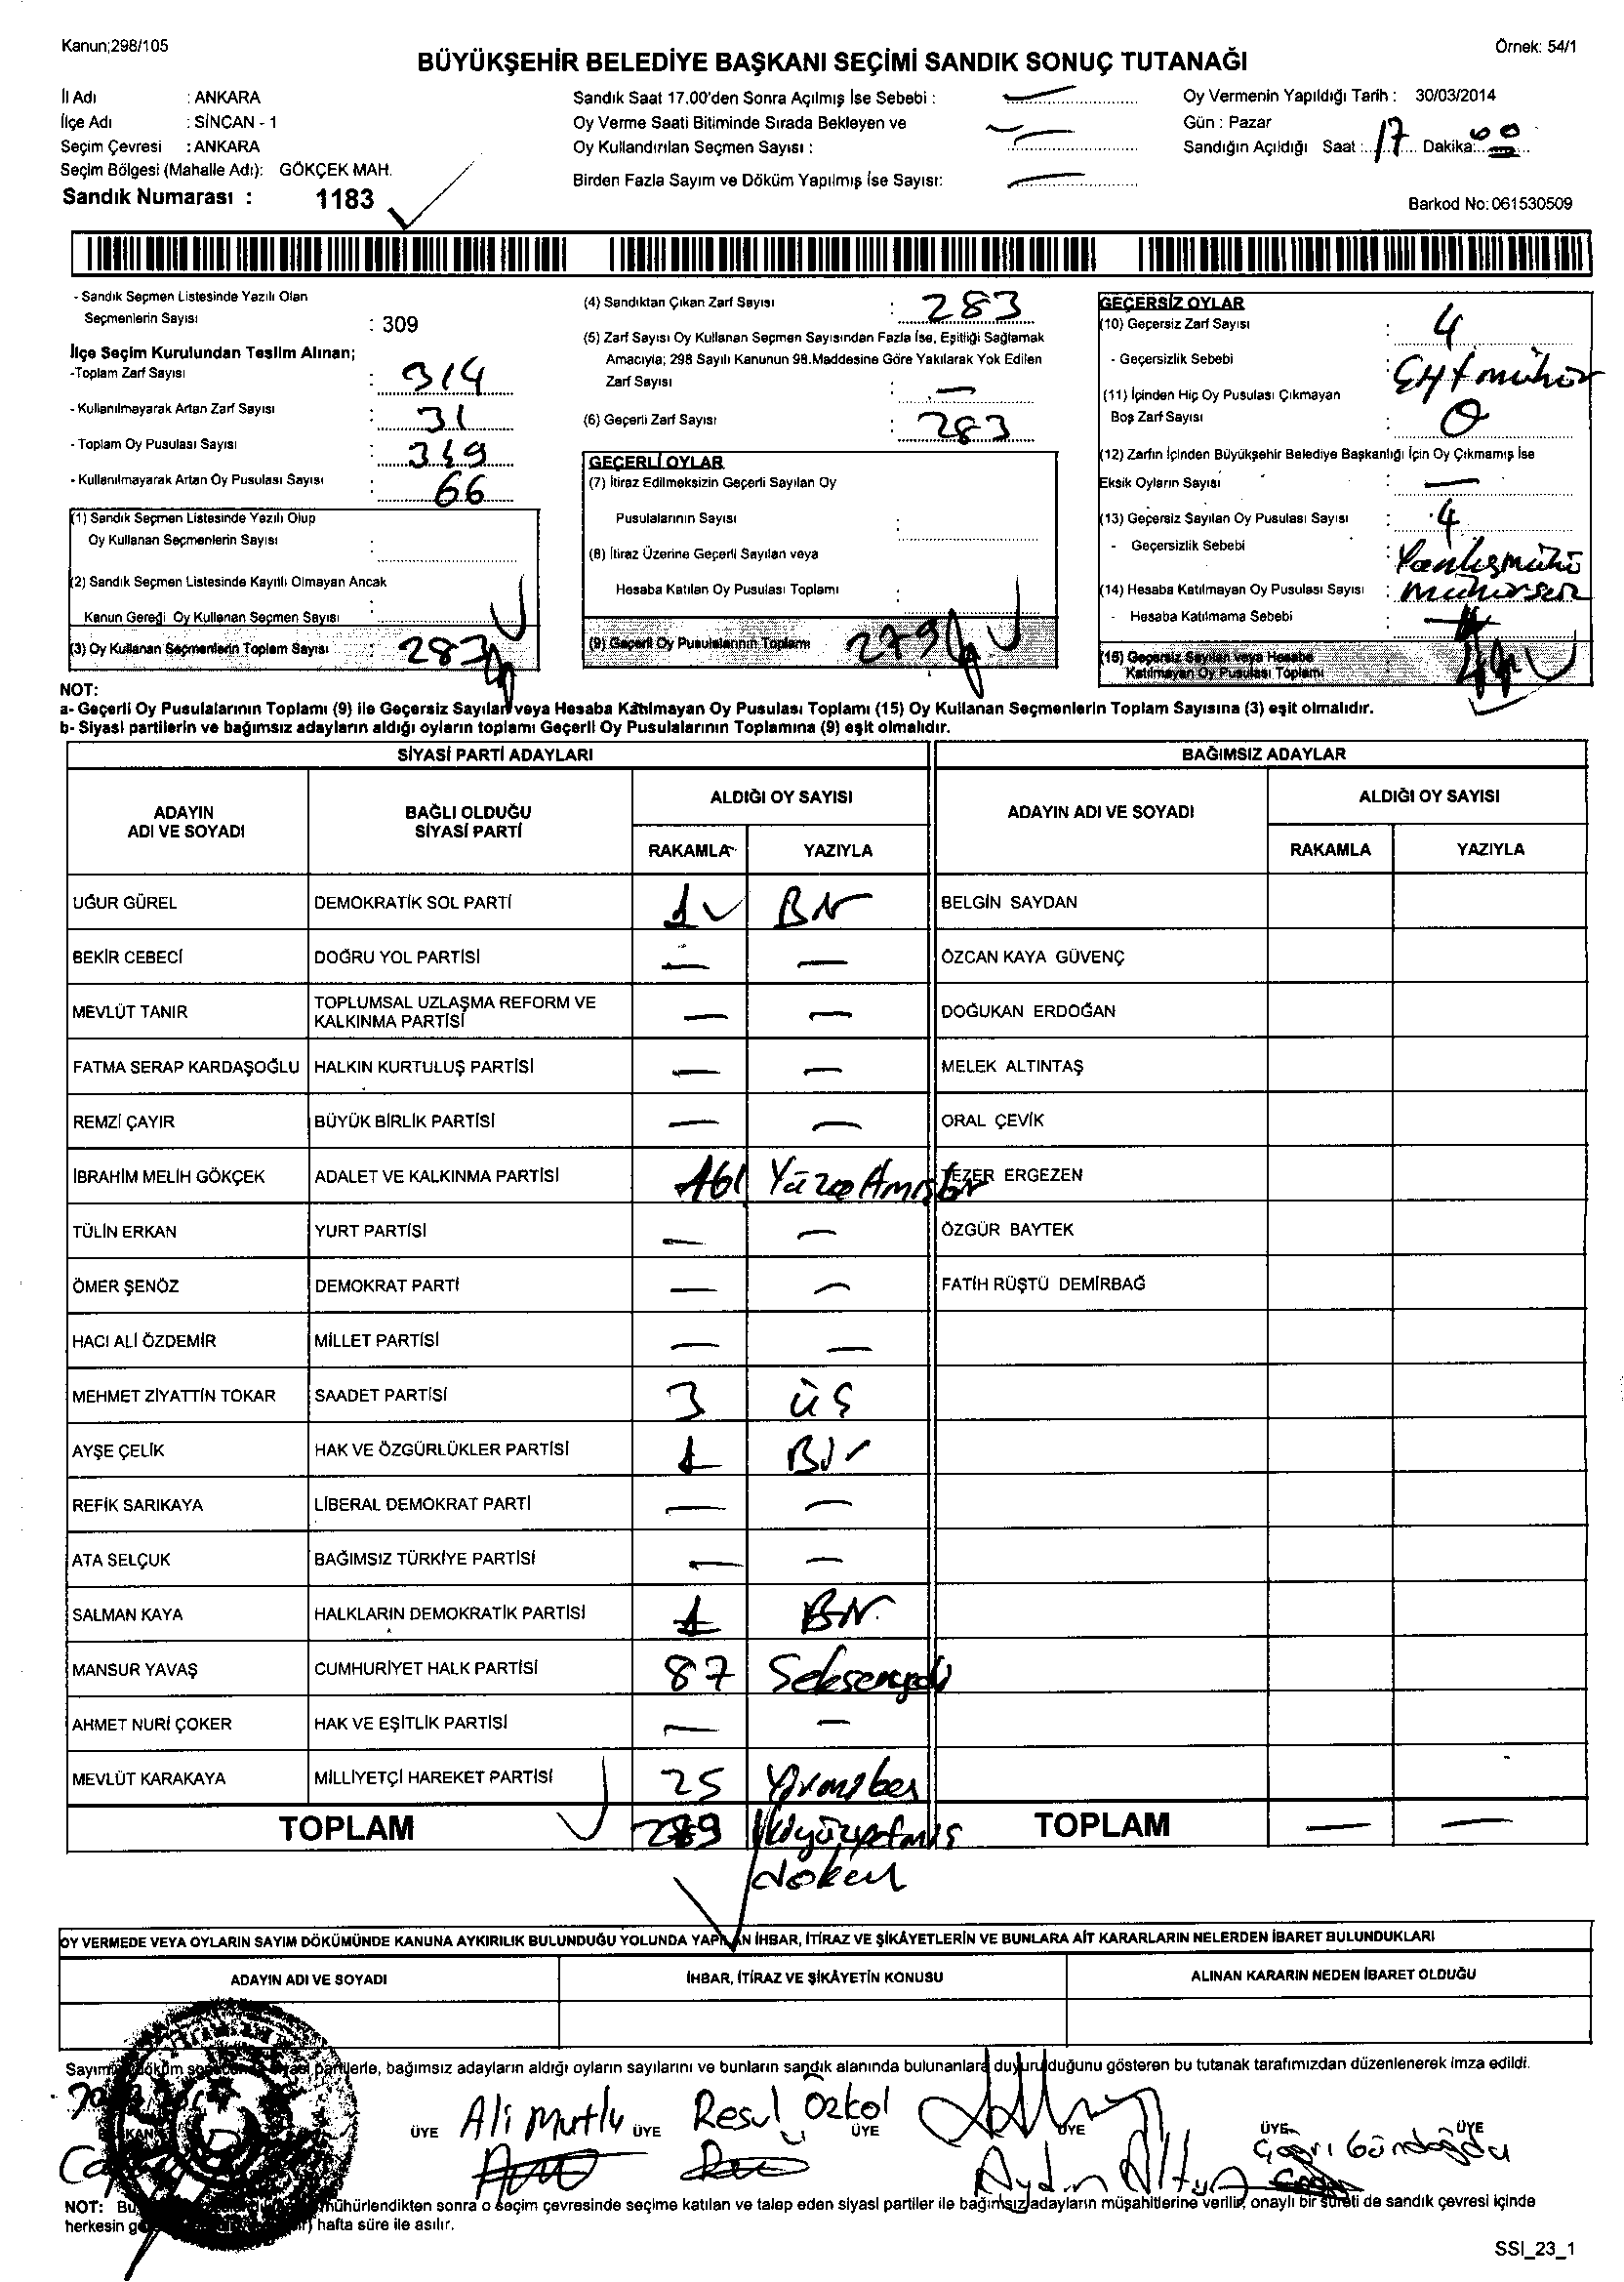 Kanun;298/105
Örnek: 54/1
BÜYÜKŞEHİR BELEDİYE BAŞKANI SEÇİMİ SANDIK SONUÇ TUTANAĞI
İl Adı : ANKARA
İlçe Adı : SİNCAN - 1
Seçim Çevresi : ANKARA
Seçim Bölgesi (Mahalle Adı): GÖKÇEK MAH.
Sandık Numarası : 1183
Sandık Saat 17.00'den Sonra Açılmış İse Sebebi :
Oy Verme Saati Bitiminde Sırada Bekleyen ve
Oy Kullandırılan Seçmen Sayısı :
Birden Fazla Sayım ve Döküm Yapılmış İse Sayısı:
Oy Vermenin Yapıldığı Tarih : 30/03/2014
Gün : Pazar
Sandığın Açıldığı Saat : 17 Dakika: 00
Barkod No: 061530509
- Sandık Seçmen Listesinde Yazılı Olan
Seçmenlerin Sayısı : 309
İlçe Seçim Kurulundan Teslim Alınan;
-Toplam Zarf Sayısı : 314
- Kullanılmayarak Artan Zarf Sayısı : 31
- Toplam Oy Pusulası Sayısı : 349
- Kullanılmayarak Artan Oy Pusulası Sayısı : 66
(1) Sandık Seçmen Listesinde Yazılı Olup
Oy Kullanan Seçmenlerin Sayısı :
(2) Sandık Seçmen Listesinde Kayıtlı Olmayan Ancak
Kanun Gereği Oy Kullanan Seçmen Sayısı :
(3) Oy Kullanan Seçmenlerin Toplam Sayısı : 283
(4) Sandıktan Çıkan Zarf Sayısı : 283
(5) Zarf Sayısı Oy Kullanan Seçmen Sayısından Fazla İse, Eşitliği Sağlamak
Amacıyla; 298 Sayılı Kanunun 98.Maddesine Göre Yakılarak Yok Edilen
Zarf Sayısı : —
(6) Geçerli Zarf Sayısı : 283
GEÇERLİ OYLAR
(7) İtiraz Edilmeksizin Geçerli Sayılan Oy
Pusulalarının Sayısı :
(8) İtiraz Üzerine Geçerli Sayılan veya
Hesaba Katılan Oy Pusulası Toplamı :
(9) Geçerli Oy Pusulalarının Toplamı 279
GEÇERSİZ OYLAR
(10) Geçersiz Zarf Sayısı : 4
- Geçersizlik Sebebi :
(11) İçinden Hiç Oy Pusulası Çıkmayan
Boş Zarf Sayısı : 0
(12) Zarfın İçinden Büyükşehir Belediye Başkanlığı İçin Oy Çıkmamış İse
Eksik Oyların Sayısı : —
(13) Geçersiz Sayılan Oy Pusulası Sayısı : 4
- Geçersizlik Sebebi :
(14) Hesaba Katılmayan Oy Pusulası Sayısı :
- Hesaba Katılmama Sebebi :
(15) Geçersiz Sayılan veya Hesaba
Katılmayan Oy Pusulası Toplamı
NOT:
a- Geçerli Oy Pusulalarının Toplamı (9) ile Geçersiz Sayılan veya Hesaba Katılmayan Oy Pusulası Toplamı (15) Oy Kullanan Seçmenlerin Toplam Sayısına (3) eşit olmalıdır.
b- Siyasi partilerin ve bağımsız adayların aldığı oyların toplamı Geçerli Oy Pusulalarının Toplamına (9) eşit olmalıdır.
SİYASİ PARTİ ADAYLARI
BAĞIMSIZ ADAYLAR
ADAYIN ADI VE SOYADI
BAĞLI OLDUĞU SİYASİ PARTİ
ALDIĞI OY SAYISI
RAKAMLA YAZIYLA
ADAYIN ADI VE SOYADI
ALDIĞI OY SAYISI
RAKAMLA YAZIYLA
UĞUR GÜREL DEMOKRATİK SOL PARTİ 1 Bir BELGİN SAYDAN
BEKİR CEBECİ DOĞRU YOL PARTİSİ — — ÖZCAN KAYA GÜVENÇ
MEVLÜT TANIR TOPLUMSAL UZLAŞMA REFORM VE KALKINMA PARTİSİ — — DOĞUKAN ERDOĞAN
FATMA SERAP KARDAŞOĞLU HALKIN KURTULUŞ PARTİSİ — — MELEK ALTINTAŞ
REMZİ ÇAYIR BÜYÜK BİRLİK PARTİSİ — — ORAL ÇEVİK
İBRAHİM MELİH GÖKÇEK ADALET VE KALKINMA PARTİSİ 161 Yüzaltmışbir TEZER ERGEZEN
TÜLİN ERKAN YURT PARTİSİ — — ÖZGÜR BAYTEK
ÖMER ŞENÖZ DEMOKRAT PARTİ — — FATİH RÜŞTÜ DEMİRBAĞ
HACI ALİ ÖZDEMİR MİLLET PARTİSİ — —
MEHMET ZİYATTİN TOKAR SAADET PARTİSİ 3 üç
AYŞE ÇELİK HAK VE ÖZGÜRLÜKLER PARTİSİ 1 Bir
REFİK SARIKAYA LİBERAL DEMOKRAT PARTİ — —
ATA SELÇUK BAĞIMSIZ TÜRKİYE PARTİSİ — —
SALMAN KAYA HALKLARIN DEMOKRATİK PARTİSİ 1 Bir
MANSUR YAVAŞ CUMHURİYET HALK PARTİSİ 87 Seksenyedi
AHMET NURİ ÇOKER HAK VE EŞİTLİK PARTİSİ — —
MEVLÜT KARAKAYA MİLLİYETÇİ HAREKET PARTİSİ 25 Yirmibeş
TOPLAM 279 TOPLAM — —
OY VERMEDE VEYA OYLARIN SAYIM DÖKÜMÜNDE KANUNA AYKIRILIK BULUNDUĞU YOLUNDA YAPILAN İHBAR, İTİRAZ VE ŞİKÂYETLERİN VE BUNLARA AİT KARARLARIN NELERDEN İBARET BULUNDUKLARI
ADAYIN ADI VE SOYADI
İHBAR, İTİRAZ VE ŞİKÂYETİN KONUSU
ALINAN KARARIN NEDEN İBARET OLDUĞU
Sayım döküm siyasi partilerle, bağımsız adayların aldığı oyların sayılarını ve bunların sandık alanında bulunanlara duyurulduğunu gösteren bu tutanak tarafımızdan düzenlenerek imza edildi.
ÜYE Ali Mutlu ÜYE Resul Özkol ÜYE ÜYE Aydın ÜYE Çağrı Gündoğdu ÜYE
NOT: Bu mühürlendikten sonra o seçim çevresinde seçime katılan ve talep eden siyasi partiler ile bağımsız adayların müşahitlerine verilir, onaylı bir sureti de sandık çevresi içinde
herkesin hafta süre ile asılır.
SSI_23_1